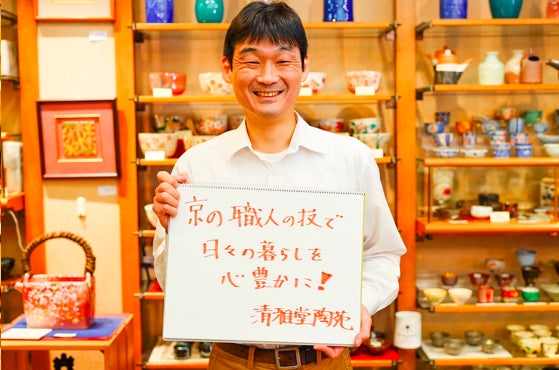 京の職人の技で
日々の暮らしを
心豊かに!
清雅堂陶苑